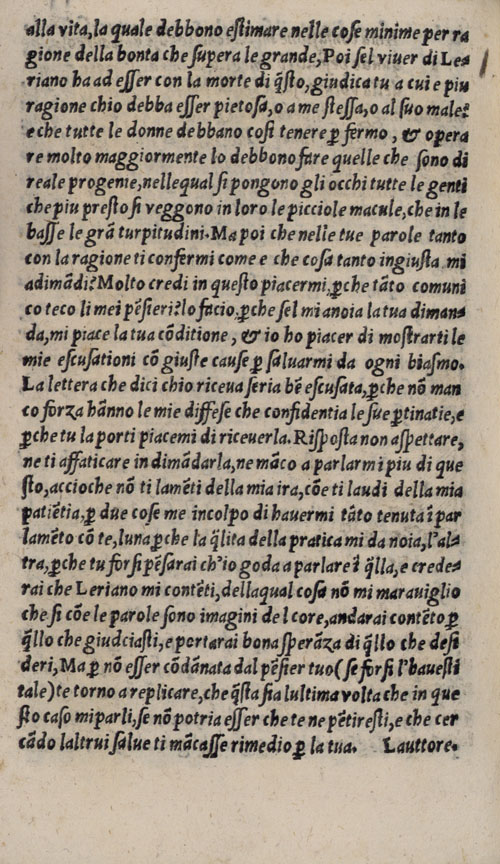 alla vita, la quale debbono estimare nelle cose minime per ra
gione della bonta che supera le grande, Poi sel viuer di Le⸗
riano ha ad esser con la morte di q̃sto, giudica tu a cui e piu
ragione chio debba esser pietosa, o a me stessa, o al suo male?
e che tutte le donne debbano cosi tenere ꝑ fermo, & opera
re molto maggiormente lo debbono fare quelle che sono di
reale progenie, nellequal si pongono gli occhi tutte le genti
che piu presto si veggono in loro le picciole macule, che in le
basse le grã turpitudini. Ma poi che nelle tue parole tanto
con la ragione ti confermi come e che cosa tanto ingiusta mi
adimãdi? Molto credi in questo piacermi, ꝑche tãto comuni
co teco li mei pẽsieri? lo facio, ꝑche sel mi anoia la tua diman⸗
da, mi piace la tua cõditione, & io ho piacer di mostrarti le
mie escusationi cõ giuste cause ꝑ saluarmi da ogni biasmo.
La lettera che dici chio riceua seria bẽ escusata, ꝑche nõ man
co forza hãnno le mie diffese che confidentia le sue ꝑtinatie, e
ꝑche tu la porti piacemi di riceuerla. Risposta non aspettare,
ne ti affaticare in dimãdarla, ne mãco a parlarmi piu di que
sto, accioche nõ ti lamẽti della mia ira, cõe ti laudi della mia
patiẽtia, ꝑ due cose me incolpo di hauermi tãto tenuta ĩ par
lamẽto cõ te, luna ꝑche la q̃lita della pratica mi da noia, l'al⸗
tra, ꝑche tu forsi pẽsarai ch'io goda a parlare ĩ q̃lla, e crede⸗
rai che Leriano mi contẽti, dellaqual cosa nõ mi marauiglio
che si cõe le parole sono imagini del core, andarai contẽto ꝑ
q̃llo che giudciasti, e portarai bona sperãza di q̃llo che desi
deri, Ma ꝑ nõ esser cõdãnata dal pẽsier tuo (se forsi l'hauesti
tale) te torno a replicare, che q̃sta sia lultima volta che in que
sto caso mi parli, se nõ potria esser che te ne pẽtiresti, e che cer
cãdo laltrui salue ti mãcasse rimedio ꝑ la tua. Lauttore.